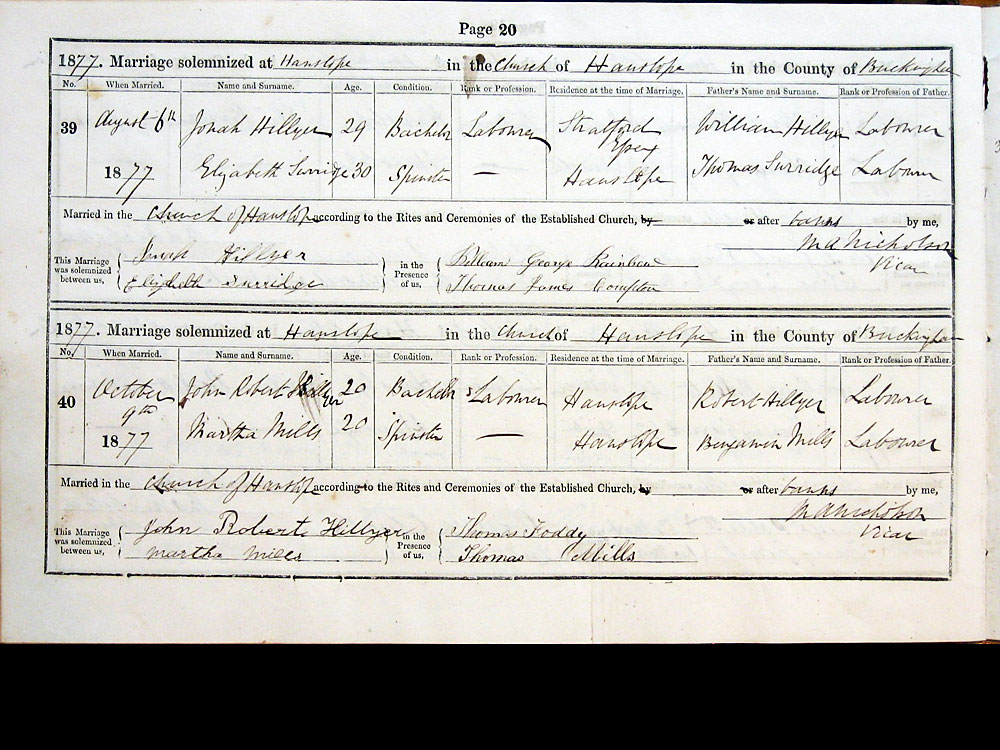 Page 20
1877. Marriage solemnized at Hanslope in the Church of Hanslope in the County of Buckingham
No. When Married. Name and Surname. Age. Condition. Rank or Profession. Residence at the time of Marriage. Father's Name and Surname. Rank or Profession of Father.
39 August 6th Jonah Hillyer 29 Bachelor Labourer Stratford Essex William Hillyer Labourer
1877 Elizabeth Surridge 30 Spinster — Hanslope Thomas Surridge Labourer
Married in the Church of Hanslope according to the Rites and Ceremonies of the Established Church, by or after banns by me,
M A Nicholson
Vicar
This Marriage was solemnized between us, Hillyer in the Presence of us, William George Rainbow
Elizabeth Surridge Thomas James Compton
1877. Marriage solemnized at Hanslope in the Church of Hanslope in the County of Buckingham
No. When Married. Name and Surname. Age. Condition. Rank or Profession. Residence at the time of Marriage. Father's Name and Surname. Rank or Profession of Father.
40 October 9th John Robert Hillyer 20 Bachelor Labourer Hanslope Robert Hillyer Labourer
1877 Martha Mills 20 Spinster — Hanslope Benjamin Mills Labourer
Married in the Church of Hanslope according to the Rites and Ceremonies of the Established Church, by or after banns by me,
M A Nicholson
Vicar
This Marriage was solemnized between us, John Roberts Hillyer in the Presence of us, Thomas Foddy
Martha Mills Thomas Mills